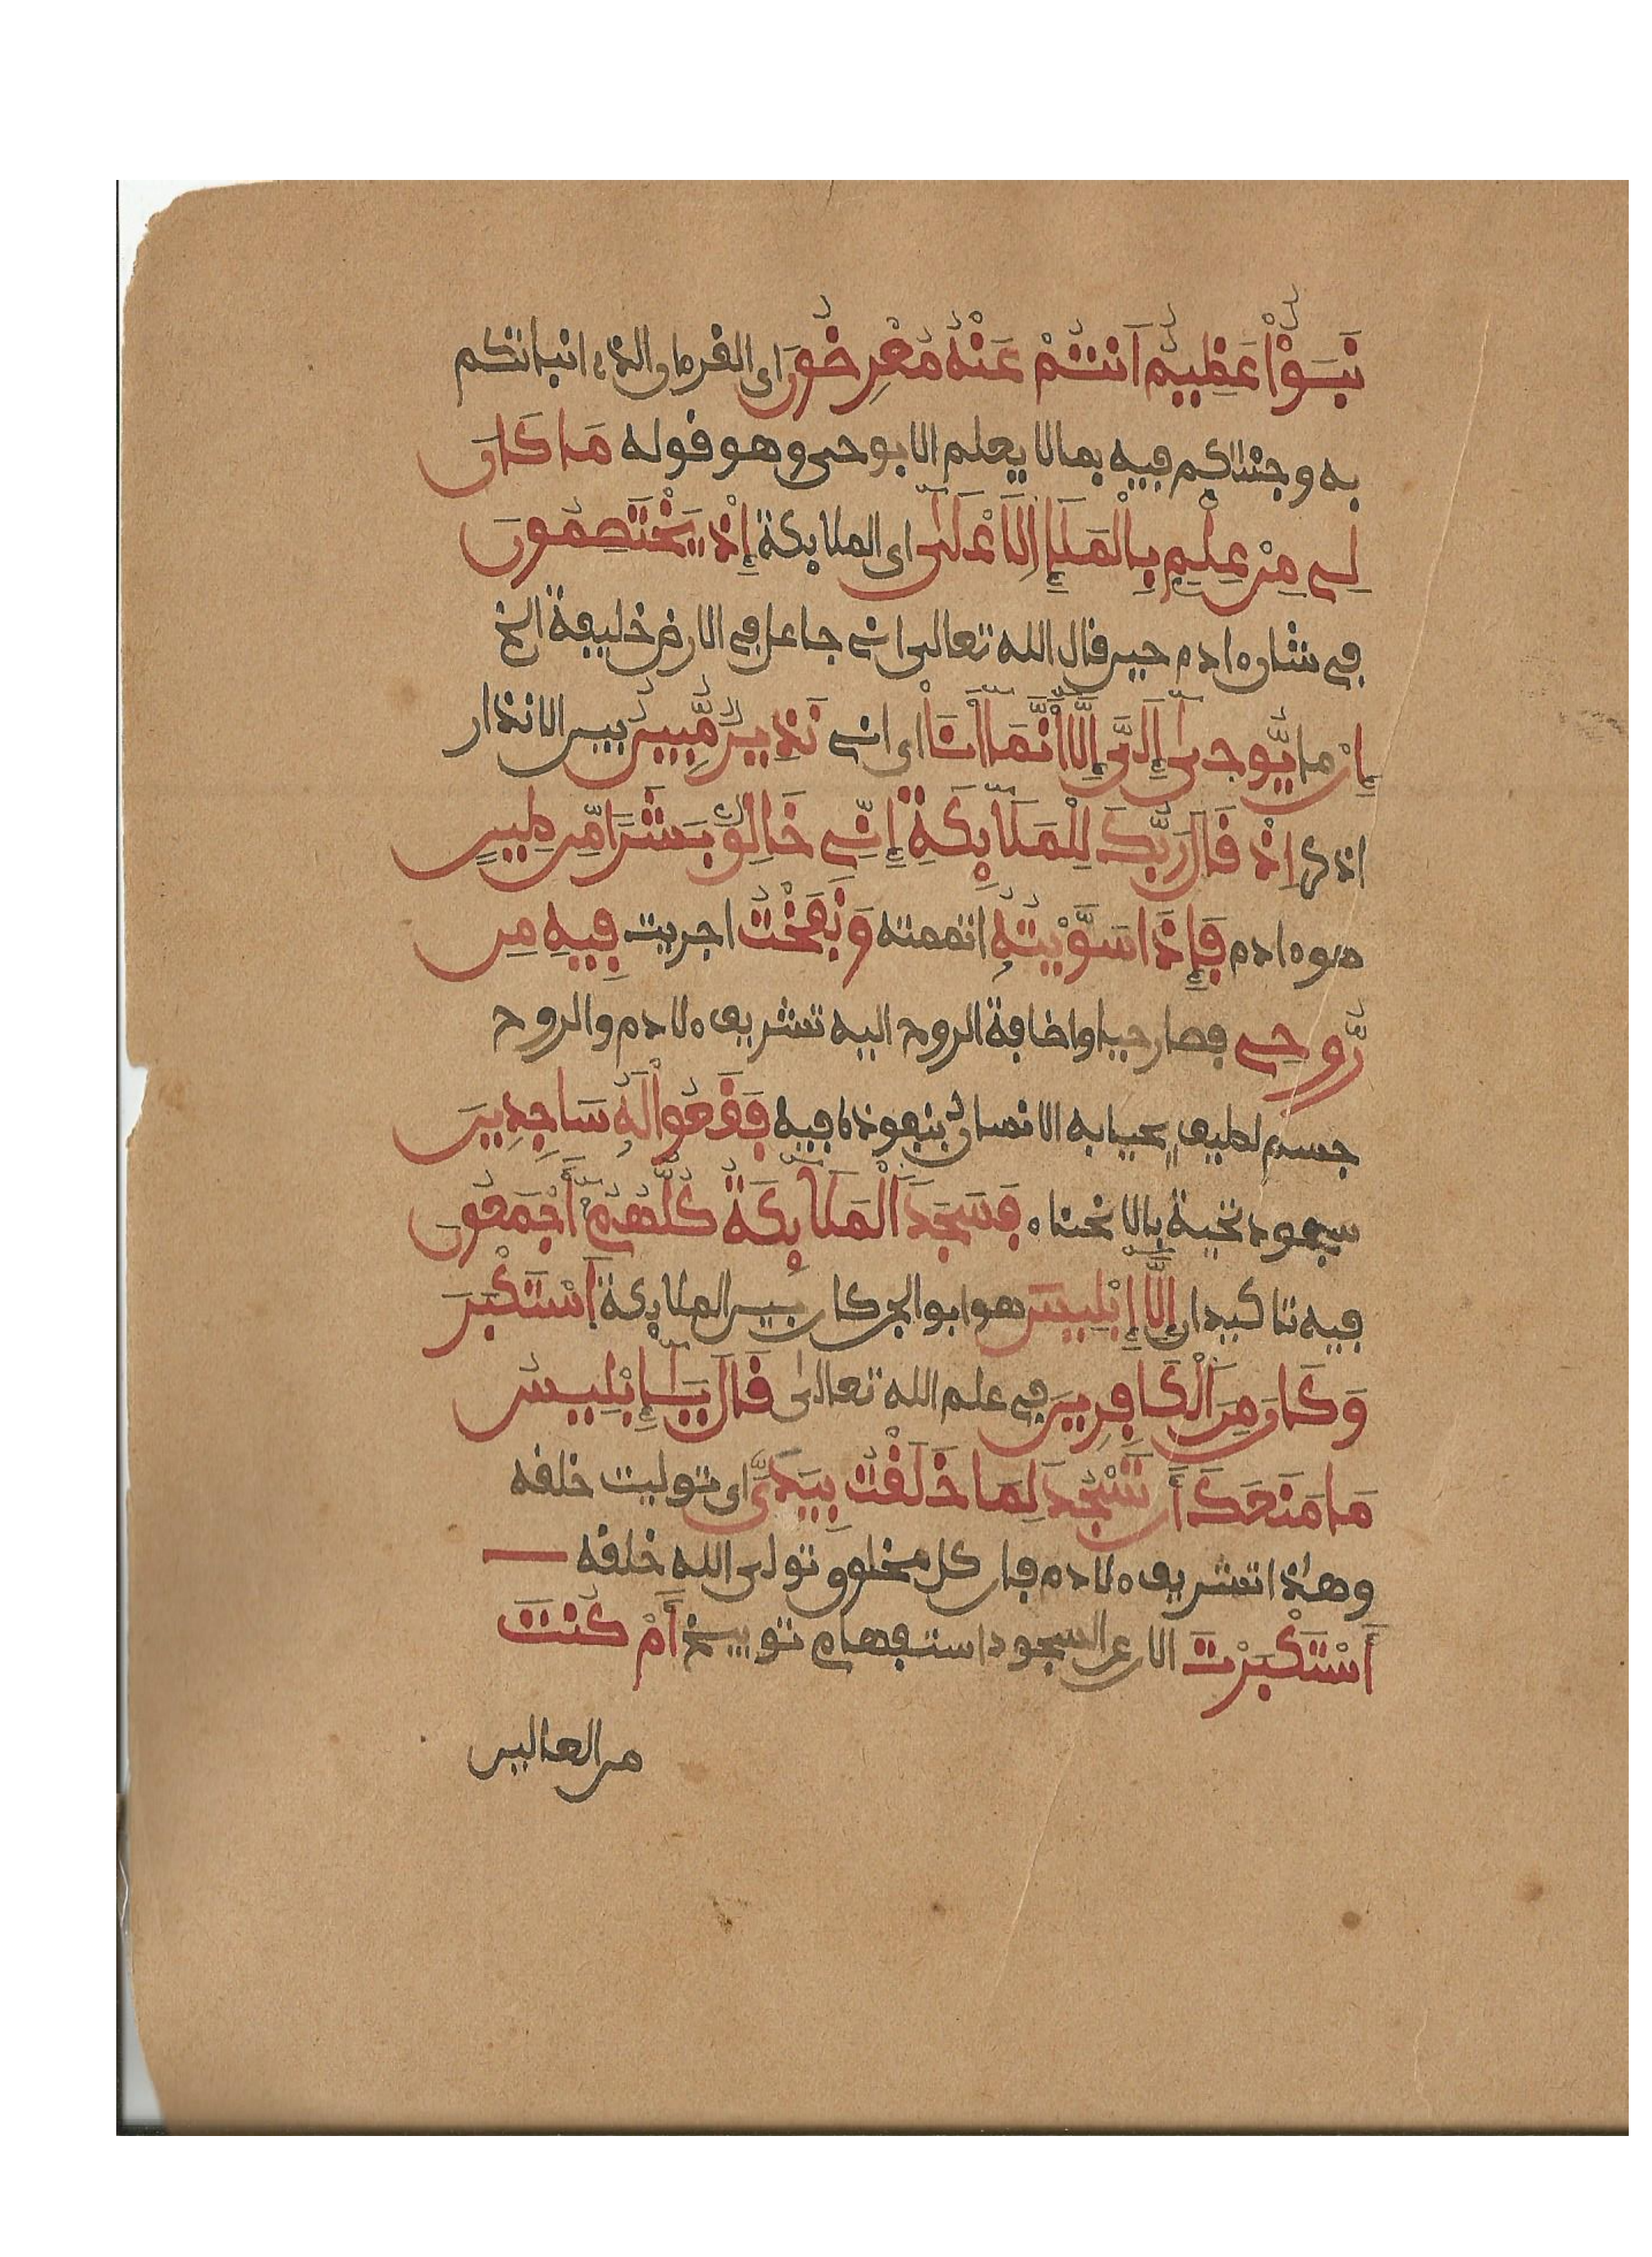 نَبَؤٌاْ عَظِيمٌ اَنتُمْ عَنْهُ مُعْرِضُونَ اى القرءان الذى انباتكم
به وجئتكم فيه بما لا يعلم الا بوحى وهو قوله مَا كَانَ
لِى مِنْ عِلْمٍ بِالْمَلَإِ اِ۬لَاعْلَىٰٓ اى الملائكة إِذْ يَخْتَصِمُونَ
فى شان ءادم حين قال الله تعالى انى جاعل فى الارض خليفة الخ
إِنْ مَا يُّوحَىٰٓ إِلَىَّ إِلَّآ أَنَّمَآ أَنَا۠ اى انى نَذِيرٌ مُّبِينٌ بين الانذار
اذكر إِذْ قَالَ رَبُّكَ لِلْمَلَٰٓئِكَةِ إِنِّى خَالِقٌ بَشَرًا مِّن طِينٍ
هو ءادم فَإِذَا سَوَّيْتُهُ اتممته وَنَفَخْتُ اجريت فِيهِ مِن
رُّوحِى فصار حيا واضافة الروح اليه تشريف ءلادم والروح
جسم لطيف يحيا به الانسان بنفوذه فيه فَقَعُواْ لَهُ سَاجِدِينَ
سجود تحية بالانحناء فَسَجَدَ اَ۬لْمَلَٰٓئِكَةُ كُلُّهُمُۥٓ أَجْمَعُونَ
فيه تاكيدان إِلَّآ إِبْلِيسَ هو ابو الجن كان بين الملائكة اَ۪سْتَكْبَرَ
وَكَانَ مِنَ اَ۬لْكَافِرِينَ فى علم الله تعالىٰ قَالَ يَٰٓإِبْلِيسُ
مَا مَنَعَكَ أَن تَسْجُدَ لِمَا خَلَقْتُ بِيَدَىَّ اى توليت خلقه
وهذا تشريف ءلادم فان كل مخلوق تولى الله خلقه
أَسْتَكْبَرْتَ الان عن السجود استفهام توبيخ أَمْ كُنتَ
من العالين